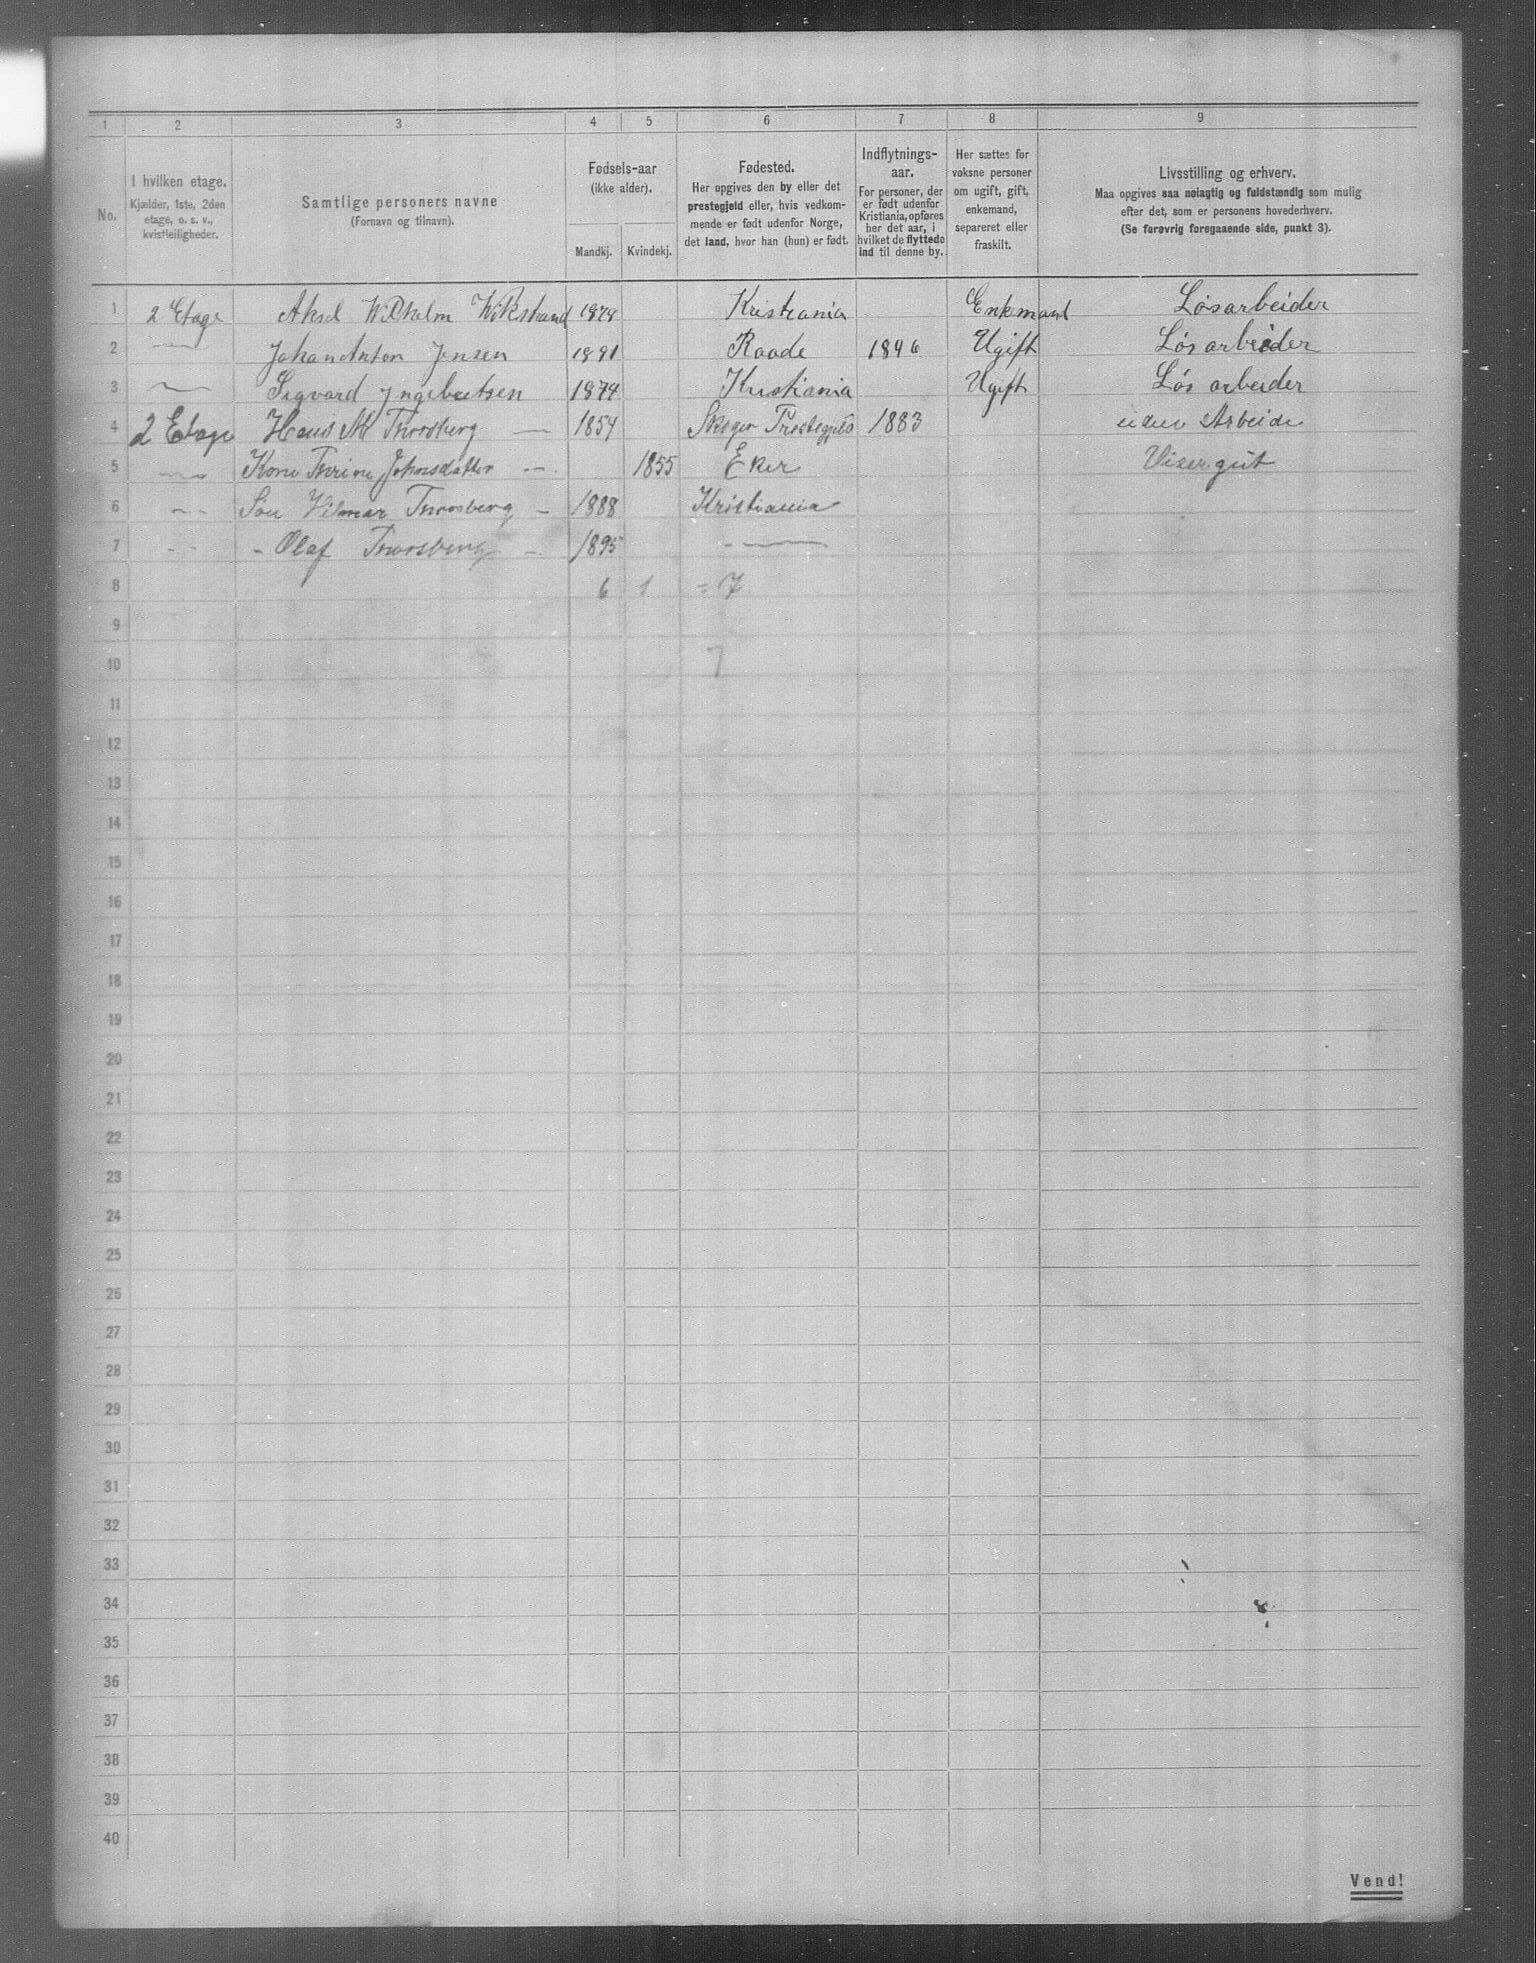 1 2 3 4 5 6 7 8 9
No.
I hvilken etage.
Kjælder, 1ste, 2den
etage, o. s. v.,
kvistleiligheder.
Samtlige personers navne
(Fornavn og tilnavn).
Fødsels-aar
(ikke alder).
Mandkj. Kvindekj.
Fødested.
Her opgives den by eller det
prestegjeld eller, hvis vedkom-
mende er født udenfor Norge,
det land, hvor han (hun) er født.
Indflytnings-
aar.
For personer, der
er født udenfor
Kristiania, opføres
her det aar, i
hvilket de flyttede
ind til denne by.
Her sættes for
voksne personer
om ugift, gift,
enkemand,
separeret eller
fraskilt.
Livsstilling og erhverv.
Maa opgives saa nøiagtig og fuldstændig som mulig
efter det, som er personens hovederhverv.
(Se forøvrig foregaaende side, punkt 3).
1 2 Etage Aksel Wilhelm Wikstrand Kristiania Enkemand Løsarbeider
2 Johan Anton Jensen 1891 Raade 1896 Ugift Løsarbeider
3 Sigvard Ingebretsen 1874 Kristiania Ugift Løs arbeider
4 2 Etage Hans M Thorsberg — 1854 Skoger Prestegjeld 1883 uden Arbeide
5 Kone Thrine Johnsdatter — 1855 Eker Visergut
6 Søn Vilmar Thorsberg — 1888 Kristiania
7 - Olaf Thorsberg — 1895 —
8 6 1 = 7
9
10 7
11
12
13
14
15
16
17
18
19
20
21
22
23
24
25
26
27
28
29
30
31
32
33
34
35
36
37
38
39
40
Vend!